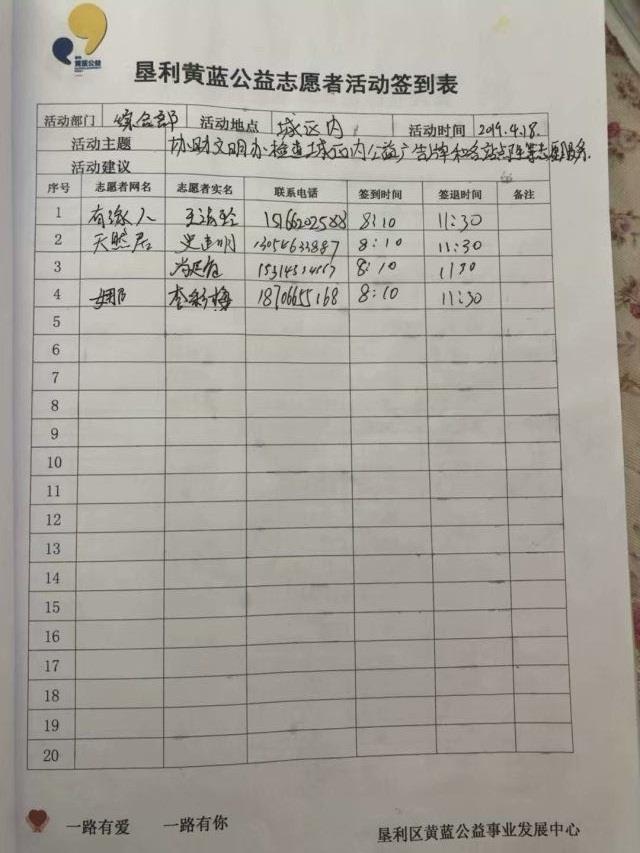 黄蓝公益
垦利黄蓝公益志愿者活动签到表
活动部门 综合部 活动地点 城区内 活动时间 2019.4.18.
活动主题 协助文明办检查城区内公益广告牌和各站点卫生等志愿服务.
活动建议
序号 志愿者网名 志愿者实名 联系电话 签到时间 签退时间 备注
1 有缘人 8:10 11:30
2 天然居 史建明 13054633887 8:10 11:30
3 8:10 11:30
4 李彩梅 18706655168 8:10 11:30
5
6
7
8
9
10
11
12
13
14
15
16
17
18
19
20
一路有爱 一路有你
垦利区黄蓝公益事业发展中心